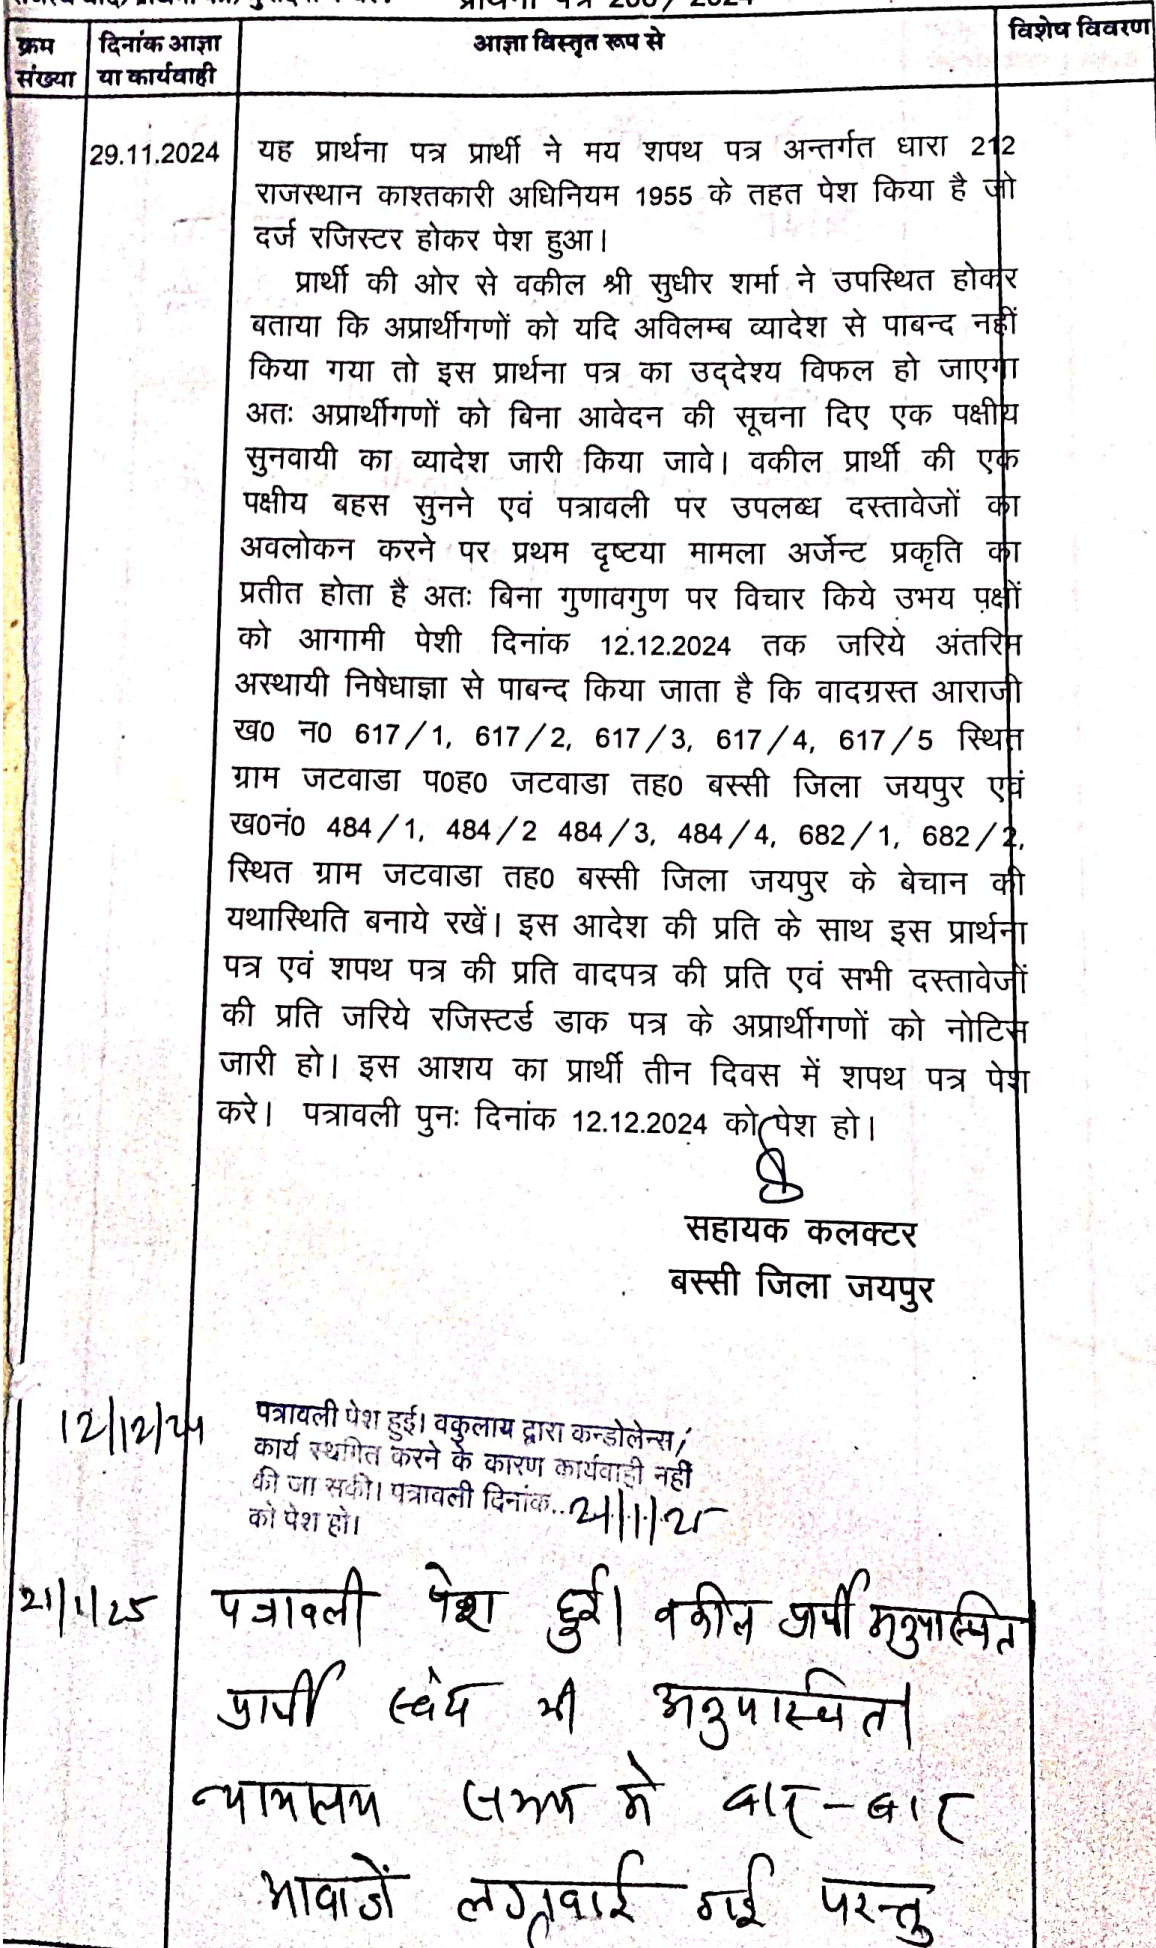 प्रार्थना पत्र 2024
क्रम संख्या
दिनांक आज्ञा या कार्यवाही
आज्ञा विस्तृत रूप से
विशेष विवरण
29.11.2024
यह प्रार्थना पत्र प्रार्थी ने मय शपथ पत्र अन्तर्गत धारा 212
राजस्थान काश्तकारी अधिनियम 1955 के तहत पेश किया है जो
दर्ज रजिस्टर होकर पेश हुआ।
प्रार्थी की ओर से वकील श्री सुधीर शर्मा ने उपस्थित होकर
बताया कि अप्रार्थीगणों को यदि अविलम्ब व्यादेश से पाबन्द नहीं
किया गया तो इस प्रार्थना पत्र का उद्देश्य विफल हो जाएगा
अतः अप्रार्थीगणों को बिना आवेदन की सूचना दिए एक पक्षीय
सुनवायी का व्यादेश जारी किया जावे। वकील प्रार्थी की एक
पक्षीय बहस सुनने एवं पत्रावली पर उपलब्ध दस्तावेजों का
अवलोकन करने पर प्रथम दृष्टया मामला अर्जेन्ट प्रकृति का
प्रतीत होता है अतः बिना गुणावगुण पर विचार किये उभय पक्षों
को आगामी पेशी दिनांक 12.12.2024 तक जरिये अंतरिम
अस्थायी निषेधाज्ञा से पाबन्द किया जाता है कि वादग्रस्त आराजी
ख0 न0 617/1, 617/2, 617/3, 617/4, 617/5 स्थित
ग्राम जटवाडा प0ह0 जटवाडा तह0 बस्सी जिला जयपुर एवं
ख0नं0 484/1, 484/2 484/3, 484/4, 682/1, 682/2,
स्थित ग्राम जटवाडा तह0 बस्सी जिला जयपुर के बेचान की
यथास्थिति बनाये रखें। इस आदेश की प्रति के साथ इस प्रार्थना
पत्र एवं शपथ पत्र की प्रति वादपत्र की प्रति एवं सभी दस्तावेजों
की प्रति जरिये रजिस्टर्ड डाक पत्र के अप्रार्थीगणों को नोटिस
जारी हो। इस आशय का प्रार्थी तीन दिवस में शपथ पत्र पेश
करे। पत्रावली पुनः दिनांक 12.12.2024 को पेश हो।
सहायक कलक्टर
बस्सी जिला जयपुर
12/12/24
पत्रावली पेश हुई। वकुलाय द्वारा कन्डोलेन्स/
कार्य स्थगित करने के कारण कार्यवाही नहीं
की जा सकी। पत्रावली दिनांक..21/1/25
को पेश हो।
21/1/25 पत्रावली पेश हुई। वकील प्रार्थी अनुपस्थित
प्रार्थी स्वंय भी अनुपस्थित।
न्यायालय समय मे बार-बार
आवाजें लगवाई गई परन्तु